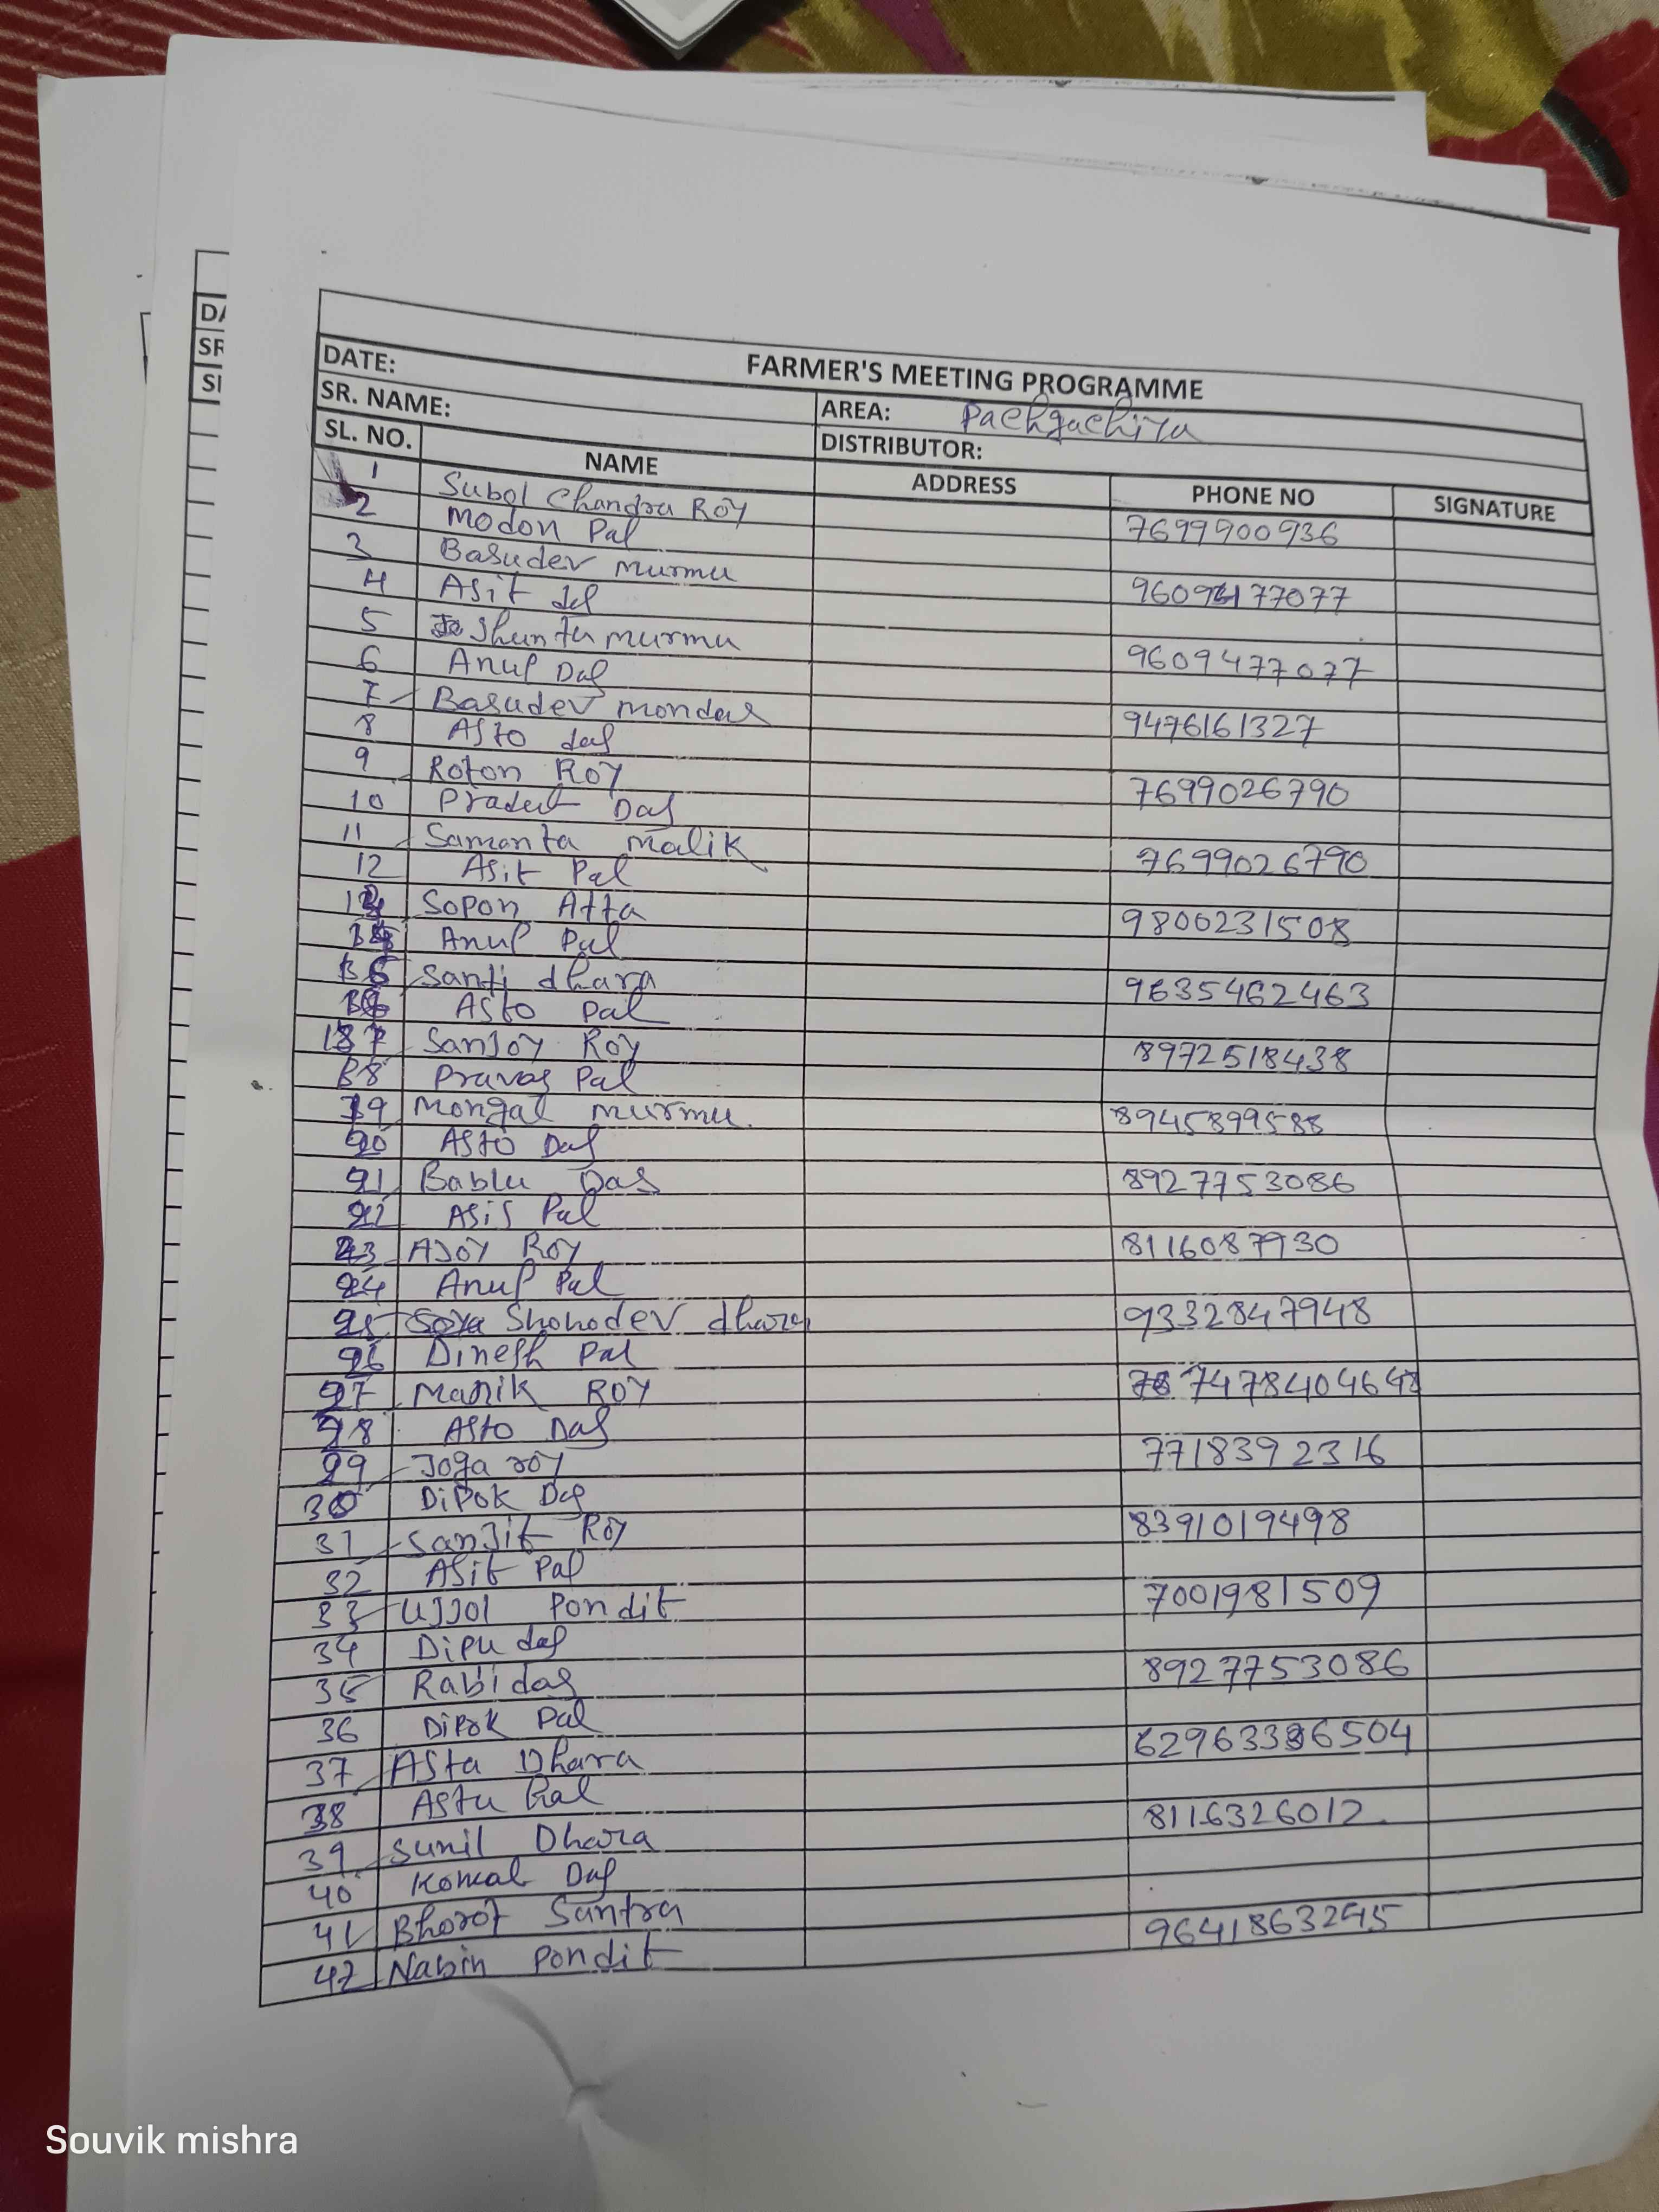 DA
SR
SI
FARMER'S MEETING PROGRAMME
DATE: AREA: Pachgachiya
SR. NAME: DISTRIBUTOR:
SL. NO. NAME ADDRESS PHONE NO SIGNATURE
1 Subol Chandra Roy 7699900936
2 Modon Pal
3 Basudev murmu
4 Asit das
5 Jhuntu murmu 9609477077
6 Anup Das
7 Basudev mondal 9476161327
8 Asto das
9 Roton Roy 7699026790
10 Das
11 Samanta malik 7699026790
12 Asit Pal
Sopon Atta 9800231508
Anup Pal
Santi dhara 9635462463
Asto Pal
Sanjoy Roy 8972518438
Pravas Pal
19 Mongal murmu. 8945899588
20 Asto Das
21 Bablu Das 8927753086
22 Asis Pal
23 AJoy Roy 8116087930
24 Anup Pal
25 Shohodev dhara 9332847948
26 Dinesh Pal
27 Manik Roy
28 Asto Das
29 Joga roy 7718392316
30 Dipok Das
31 SanJit Roy 8391019498
32 Asit Pal
33 UJJol Pondit 7001981509
34 Dipu das
35 Rabi das 8927753086
36 Dipok Pal
37 Asta Dhara
38 Astu Pal
39 Sunil Dhara 8116326012
40 Komal Das
41 Bhorot Santra 9641863295
42 Nabin Pondit
Souvik mishra